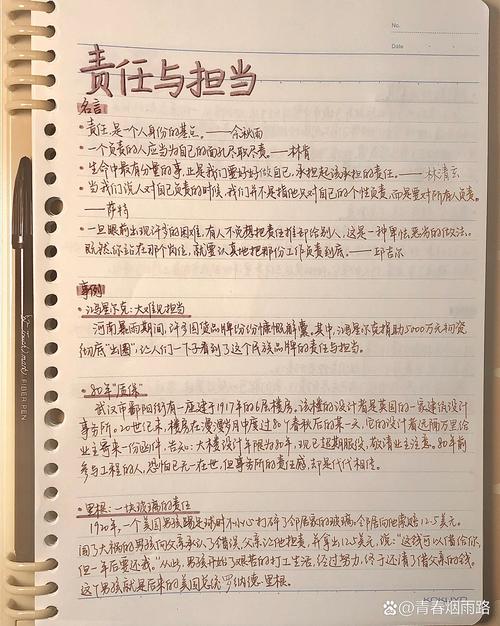 No.
Date
责任与担当
名言
·责任是一个人身份的基点。——余秋雨
·一个负责的人应当为自己的面孔尽职尽责。——林肯
·生命中最有分量的事,正是我们要好好做自己,承担起该承担的责任。——林清玄
·当我们说人对自己负责的时候,我们并不是指他只对自己的个性负责,而是要对所有人负责。
——萨特
·一旦眼前出现许多的困难,有人不免想把责任推却给别人,这是一种卑怯恶劣的做法。
既然你站在那个岗位,就要认真地把那份工作负责到底。——丘吉尔
事例
·鸿星尔克:大难见担当
河南暴雨期间,许多国货品牌纷纷慷慨解囊。其中,鸿星尔克捐助5000万物资
彻底“出圈”,让人们一下子看到了这个民族品牌的责任与担当。
·80年“质保”
武汉市鄱阳街有一座建于1917年的6层楼房,该楼的设计者是英国的一家建筑设计
事务所。20世纪末,楼房在漫漫岁月中度过80个春秋后的某一天,它的设计者远隔万里给
业主寄来一份函件,告知:大楼设计年限为80年,现已超期服役,敬请业主注意。80年前
参与工程的人,恐怕已无一在世,但事务所的责任感,却是代代相传。
·里根:一块玻璃的责任
1920年,一个美国男孩踢足球时不小心打碎了邻居家的玻璃,邻居向他索赔12.5美元。
闯了大祸的男孩向父亲承认了错误,父亲让他担责,并拿出12.5美元,说:“这钱可以借给你,
但一年后要还我。”从此,男孩开始了艰苦的打工生活,经过努力,终于还清了借父亲的钱。
这个男孩就是后来的美国总统罗纳德·里根。
KOKUYO
FIBER PEN
@青春烟雨路